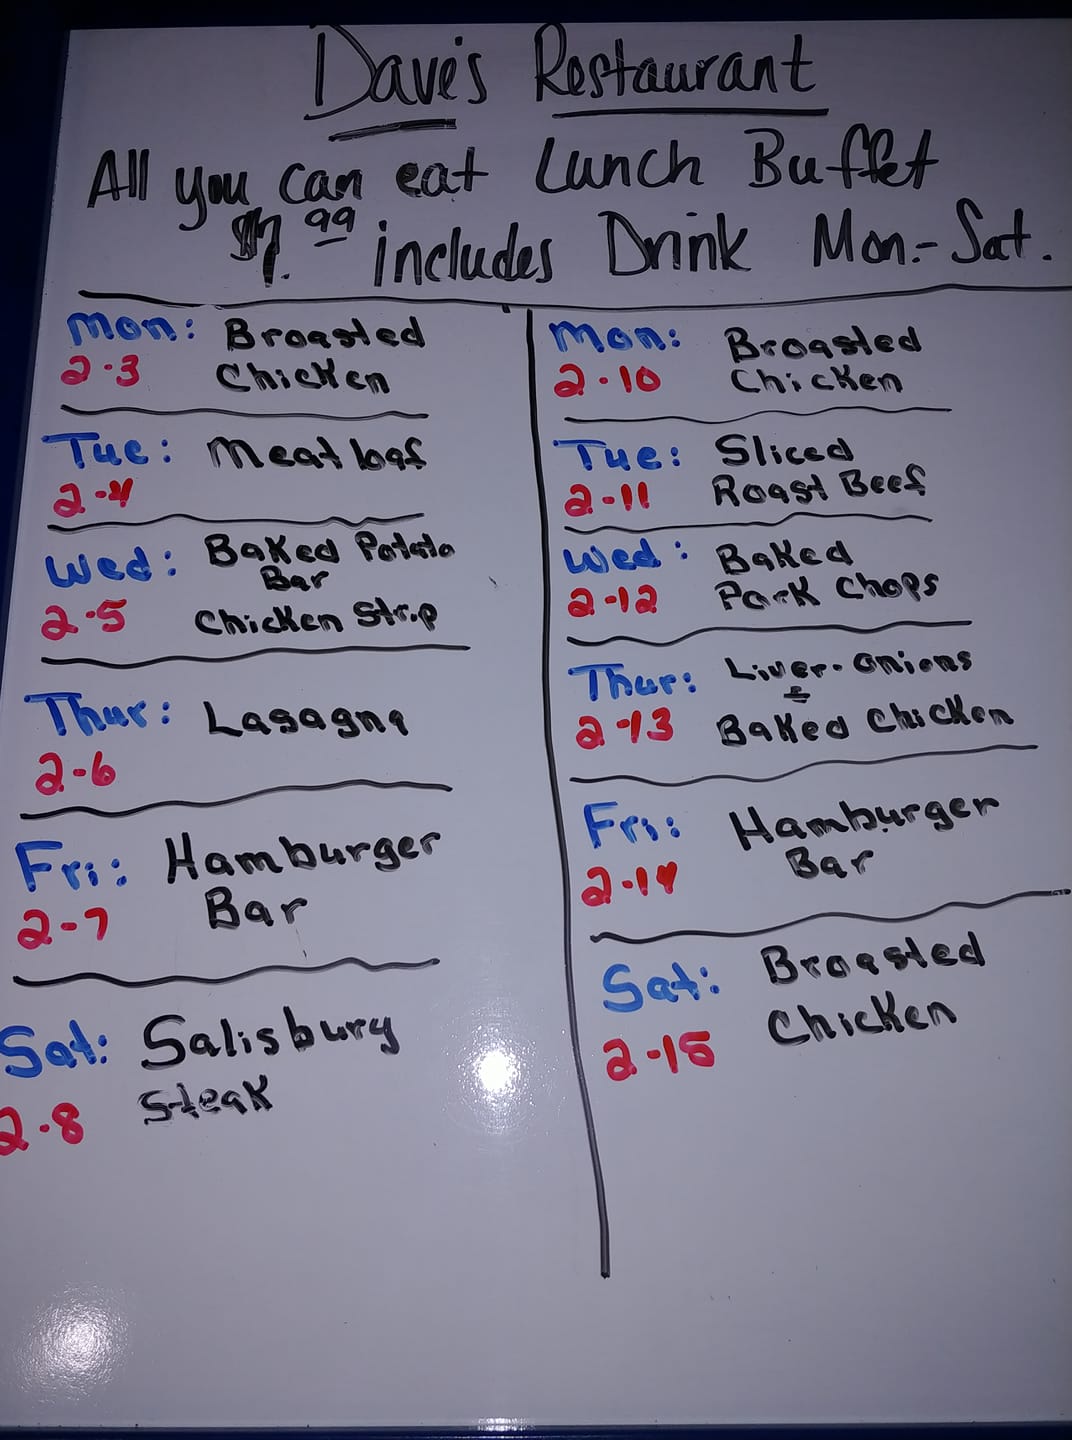 Dave's Restaurant
All you can eat Lunch Buffet
$7.99 includes Drink Mon.-Sat.
Mon: Broasted
2-3 Chicken
Tue: Meatloaf
2-4
Wed: Baked Potato
Bar
2-5 Chicken Strip
Thur: Lasagna
2-6
Fri: Hamburger
2-7 Bar
Sat: Salisbury
2-8 Steak
Mon: Broasted
2-10 Chicken
Tue: Sliced
2-11 Roast Beef
Wed: Baked
2-12 Pork Chops
Thur: Liver-onions
&
2-13 Baked Chicken
Fri: Hamburger
2-14 Bar
Sat: Broasted
2-15 Chicken